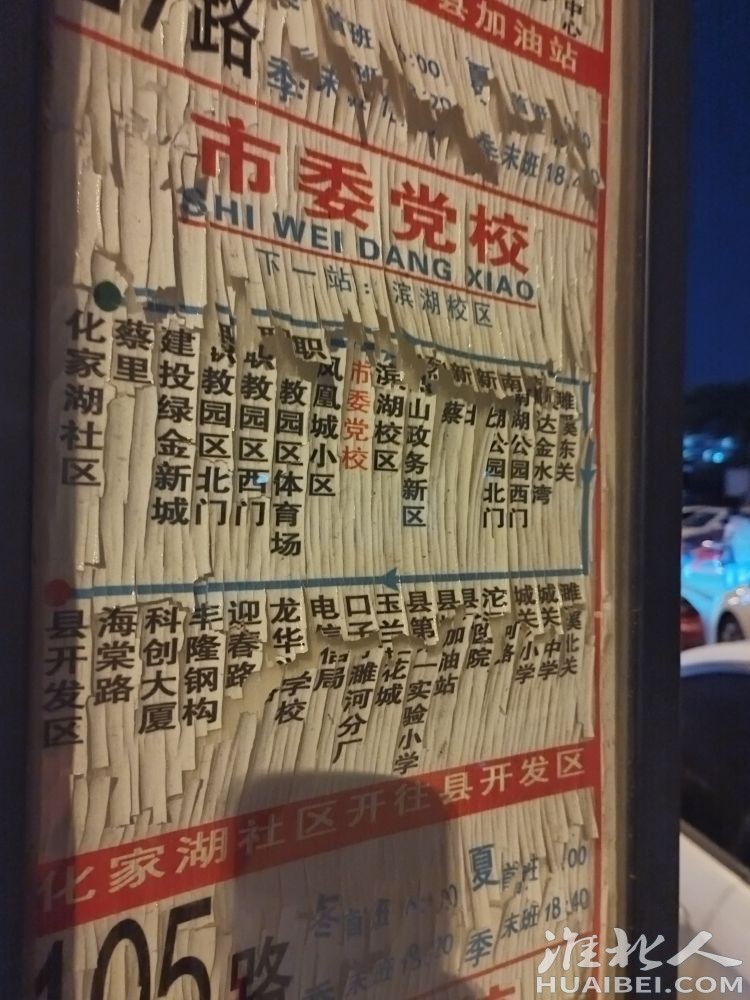 路
中心
县加油站
首班 :00
夏 首
季 末
季 末班 18:40
市委党校
SHI WEI DANG XIAO
下一站：滨湖校区
化家湖社区
蔡里
建投绿金新城
职教园区北门
职教园区西门
职教园区体育场
凤凰城小区
市委党校
滨湖校区
山政务新区
新蔡
新北
南湖公园北门
南湖公园西门
达金水湾
濉溪东关
濉溪北关
城关中学
城关小学
沱河路
院
县加油站
县第一实验小学
玉兰花城
口子濉河分厂
电信局
龙华学校
迎春路
丰隆钢构
科创大厦
海棠路
县开发区
化家湖社区开往县开发区
105路
冬 首班
夏 首班 :00
季 末班 18:40
淮北人
HUAIBEI.COM